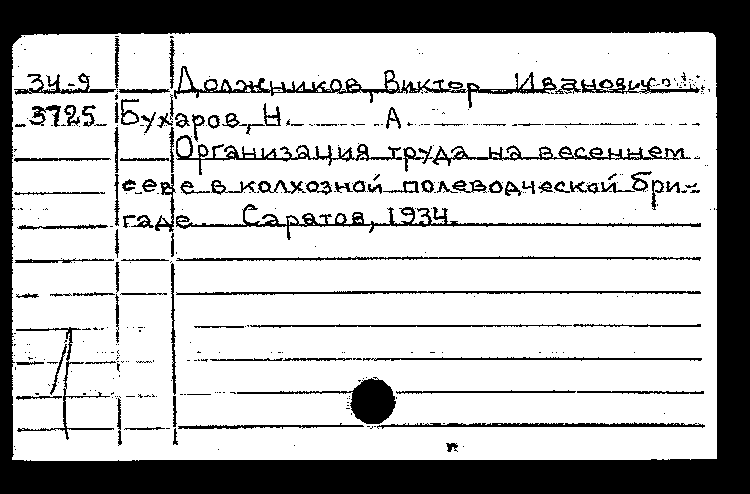 34-9 Должников, Виктор Иванович
3725 Бухаров, Н. А.
Организация труда на весеннем
севе в колхозной полеводческой бри-
гаде. Саратов, 1934.
1
п